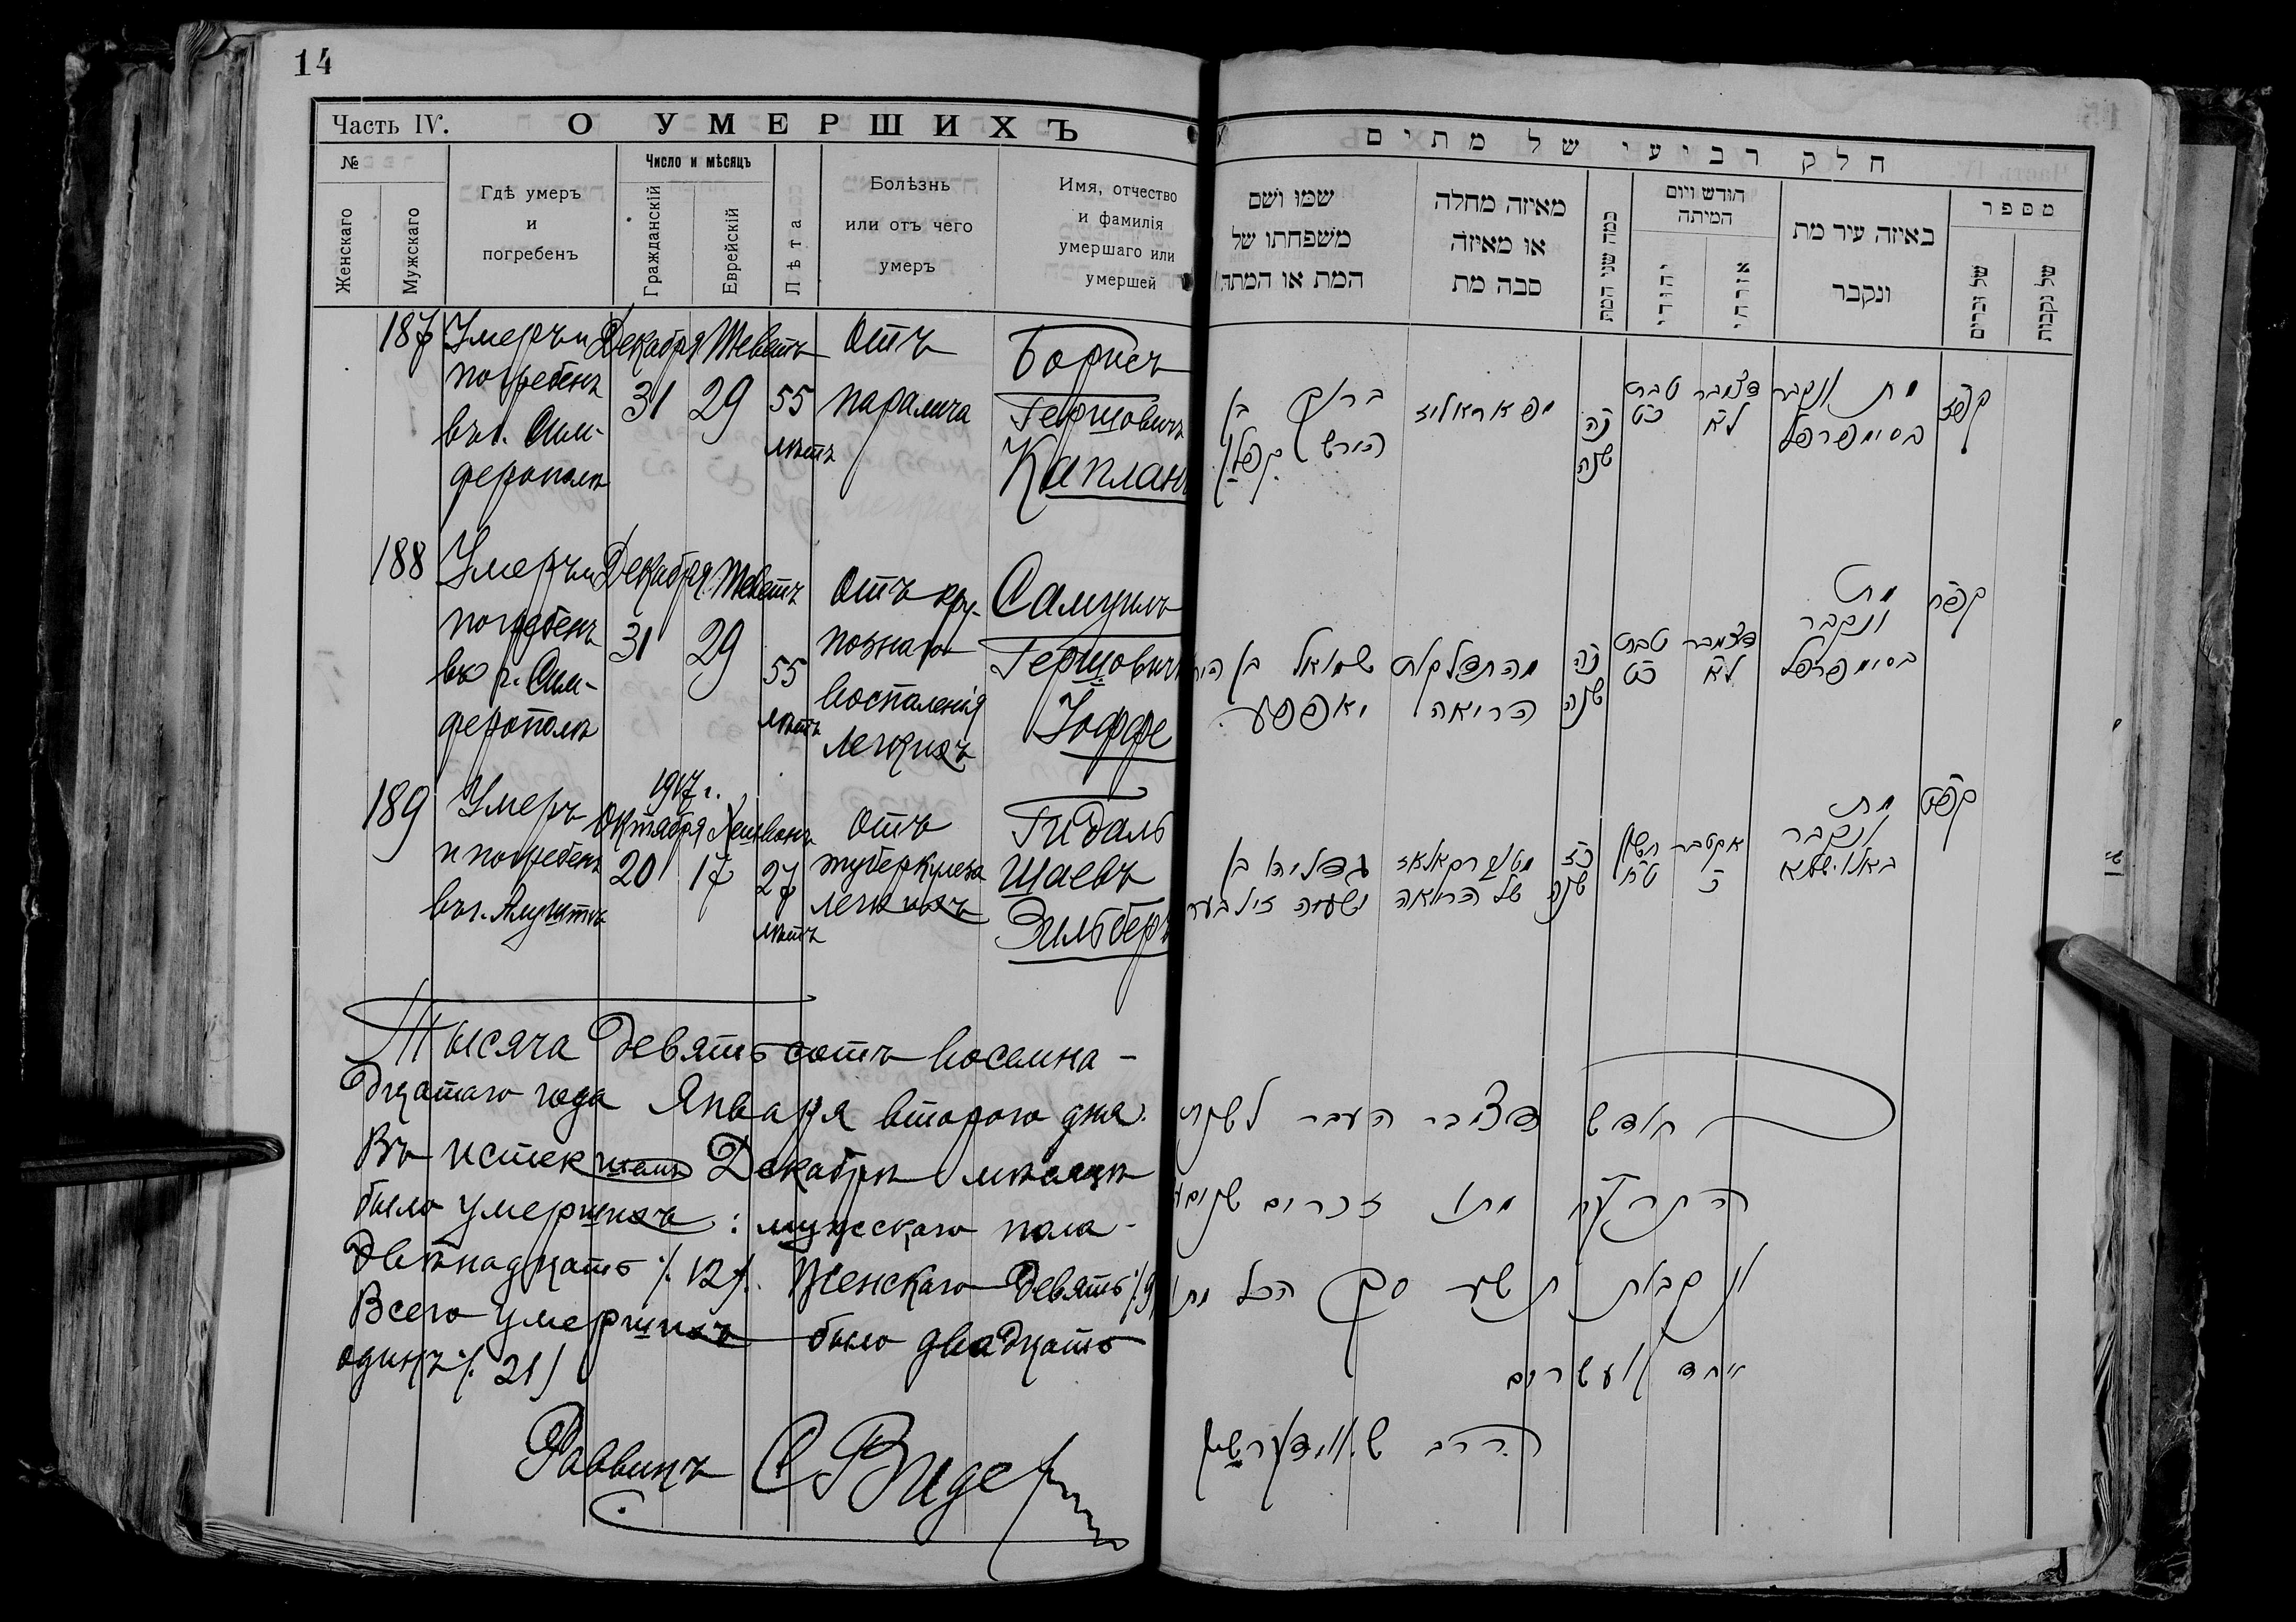 14
Часть IV. О УМЕРШИХЪ
№
Женскаго
Мужскаго
Гдѣ умеръ
и
погребенъ
Число и мѣсяцъ
Гражданскій
Еврейскій
Лѣта
Болѣзнь
или отъ чего
умеръ
Имя, отчество
и фамилія
умершаго или
умершей
187
Умеръ и
погребенъ
въ г. Сим-
ферополѣ
Декабря
31
Теветъ
29
55
лѣтъ
Отъ
паралича
Борисъ
Гершовичъ
Капланъ
188
Умеръ и
погребенъ
въ г. Сим-
ферополѣ
Декабря
31
Теветъ
29
55
лѣтъ
Отъ кру-
познаго
воспаленія
легкихъ
Самуилъ
Гершовичъ
Іоффе
189
Умеръ
и погребенъ
въ г. Алуштѣ
1917 г.
Октября
20
Хешванъ
17
27
лѣтъ
Отъ
туберкулеза
легкихъ
Гидаль
Шаевъ
Зильбер
Тысяча девятьсотъ восемна-
дцатаго года Января второго дня.
Въ истекшемъ Декабрѣ мѣсяцѣ
было умершихъ: мужескаго пола -
Двѣнадцать /.12/. Женскаго девять /.9
Всего умершихъ было двадцать
одинъ /.21/
Раввинъ
חלק רביעי של מתים
מספר
של נקבות
של זכרים
באיזה עיר מת
ונקבר
חודש ויום
המיתה
אזרחי
יהודי
כמה שני המת
מאיזה מחלה
או מאיזה
סבה מת
שמו ושם
משפחתו של
המת או המתה
קפז
מת ונקבר
בסימפרפל
דצמבר
לא
טבת
כט
נה
שנה
מפאראליז
ברוך בן
הירש קפלן
קפח
מת
ונקבר
בסימפרפל
דצמבר
לא
טבת
כט
נה
שנה
מהתדלקות
הריאה
שמואל בן
יאפפע
קפט
מת
ונקבר
באלושטא
אקטבר
כ
חשון
כז
שנה
של הריאה
גדליהו בן
ישעיה
חודש דצמבר העבר לשנת
מתו זכרים שנים
ונקבות תשע סך הכל מתו
אחד ועשרים
הרב